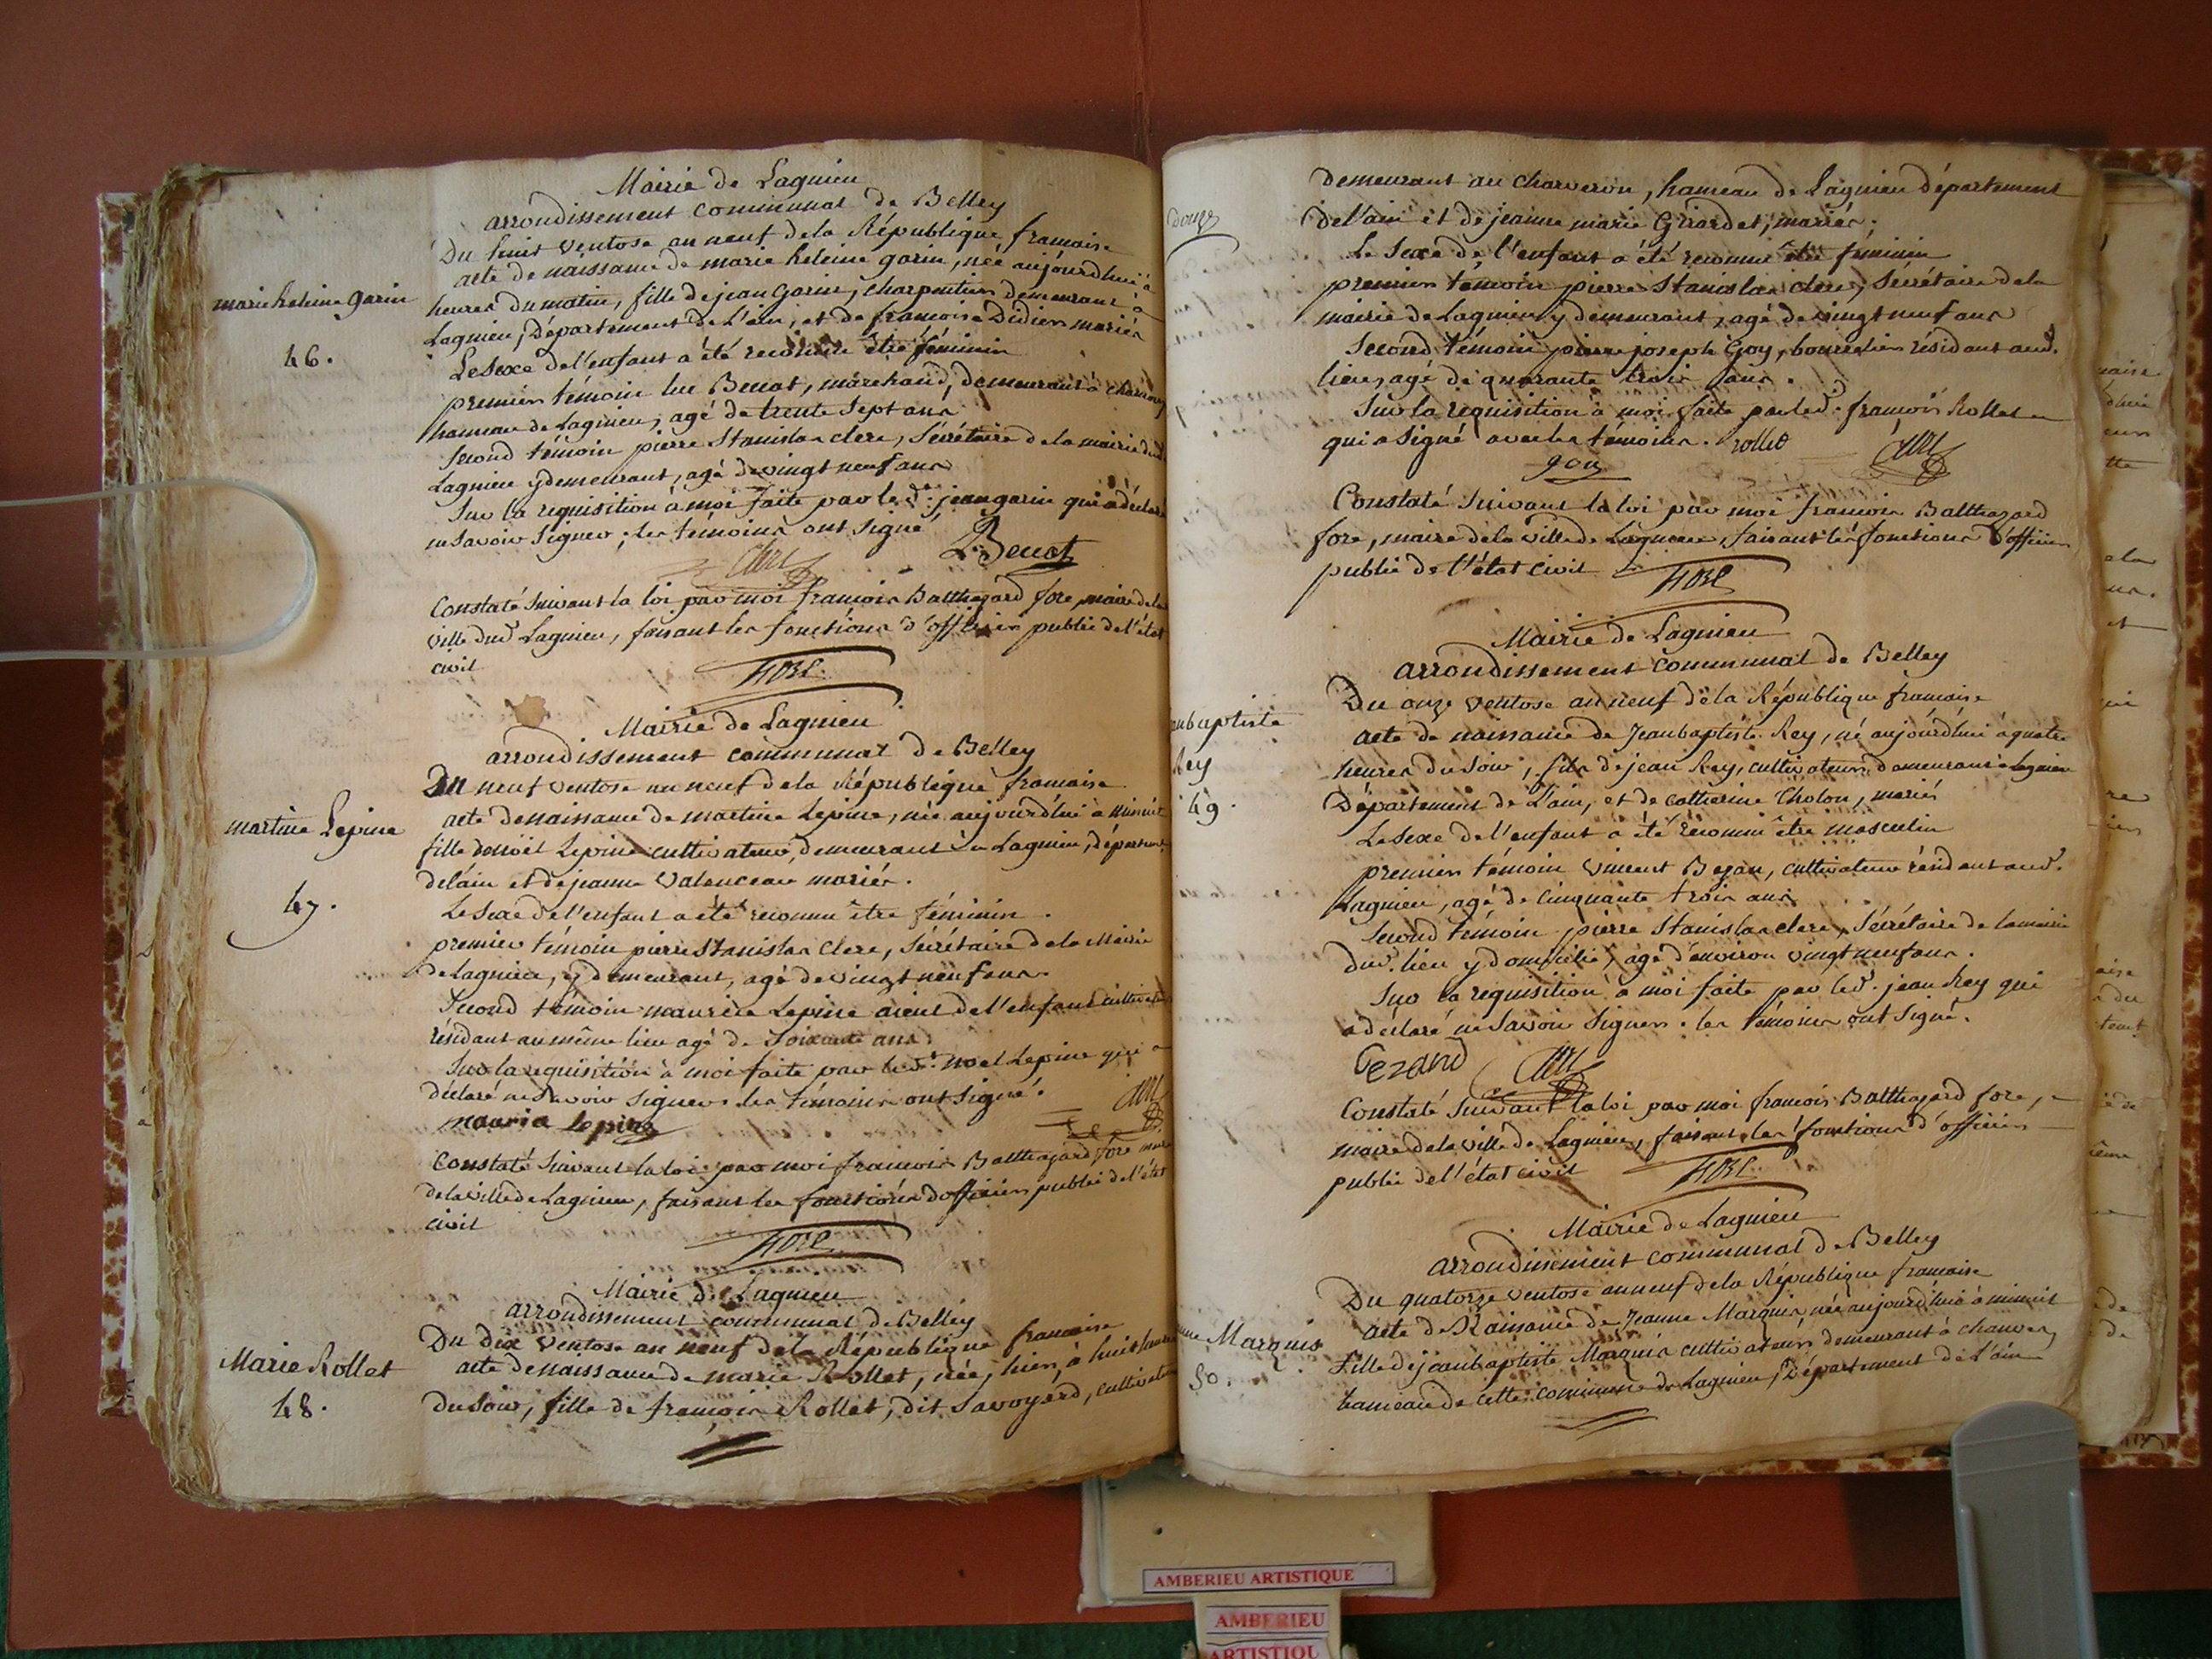 Mairie de Lagnieu
arrondissement communal de Belley
Du huit ventose an neuf de la République francaise
acte de naissance de marie heleine garin, née aujourdhui à
heures du matin, fille de jean Garin, charpentier demeurant à
Lagnieu, Département de L'ain, et de francoise Didier mariés
Le sexe de l'enfant a été reconnu être féminin
premier témoin luc Benat, marchand, demeurant à
hameau de Lagnieu, agé de trente sept ans
second témoin pierre Stanislas clerc, Sécrétaire de la mairie dud
Lagnieu y demeurant, agé de vingt neuf ans
Sur la requisition à moi faite par led. jean garin qui a déclaré
ne savoir signer; les témoins ont signé
Benat
Constaté suivant la loi par moi francois Balthazard fore, maire de la
ville dud Lagnieu, faisant les fonctions d'officier public de l'état
civil
FORE
marie heleine garin
46.
Mairie de Lagnieu
arrondissement communal de Belley
Du neuf ventose an neuf de la République francaise
acte de naissance de martine Lepine, née aujourd'hui à minuit
fille de noël Lepine cultivateur, demeurant à Lagnieu, département
de l'ain et de jeanne valenceau mariés.
Le sexe de l'enfant a été reconnu être féminin.
premier témoin pierre Stanislas clerc, Sécrétaire de la Mairie
de Lagnieu, y demeurant, agé de vingt neuf ans.
Second témoin maurice Lepine aieul de l'enfant cultivateur
résidant au même lieu agé de soixante ans
Sur la requisition à moi faite par led. noel Lepine qui a
déclaré ne savoir signer. les témoins ont signé.
mauria lepine
Constaté suivant la loi par moi francois Balthazard fore maire
de la ville de Lagnieu, faisant les fonctions d'officier public de l'état
civil
FORE
martine Lepine
47.
Mairie de Lagnieu
arrondissement communal de Belley
Du dix ventose an neuf de la République francaise
acte de naissance de marie Rollet, née, hier, à huit heures
du soir, fille de françois Rollet, dit Savoyard, cultivateur
Marie Rollet
48.
douze
demeurant au charveron, hameau de Lagnieu département
de l'ain et de jeanne marie Girardet, mariés;
Le sexe de l'enfant a été reconnu être feminin
premier témoin pierre Stanislas clerc, Sécrétaire de la
mairie de Lagnieu y demeurant, agé de vingt neuf ans
Second témoin pierre joseph Goy, bourrelier résidant aud.
lieu, agé de quarante trois ans.
Sur la requisition à moi faite par led. françois Rollet
qui a signé avec les témoins. rollet
goy
Constaté suivant la loi par moi francois Balthazard
fore, maire de la ville de Lagnieu, faisant les fonctions d'officier
public de l'état civil FORE
Mairie de Lagnieu
arrondissement communal de Belley
Du onze ventose an neuf de la République francaise
acte de naissance de Jeanbaptiste Rey, né aujourdhui à quatre
heures du soir, fils de jean Rey, cultivateur demeurant à Lagnieu
Département de L'ain, et de catherine Cholon, mariés
Le sexe de l'enfant a été reconnu être masculin
premier témoin vincent Bezan, cultivateur résidant aud.
Lagnieu, agé de cinquante trois ans
Second témoin pierre Stanislas clerc, Sécrétaire de la mairie
dud. lieu y domicilié, agé d'environ vingt neuf ans.
Sur la requisition à moi faite par led. jean Rey qui
a déclaré ne savoir signer. les témoins ont signé.
Constaté suivant la loi par moi francois Balthazard fore,
maire de la ville de Lagnieu, faisant les fonctions d'officier
public de l'état civil FORE
nbaptiste
Rey
49.
Mairie de Lagnieu
arrondissement communal de Belley
Du quatorze ventose an neuf de la République francaise
acte de Naissance de Jeanne Marquis, née aujourd'hui à minuit
fille de jeanbaptiste Marquis cultivateur, demeurant à
hameau de cette commune de Lagnieu, Département de L'ain
nne Marquis
50.
AMBERIEU ARTISTIQUE
AMBERIEU
ARTISTIQU